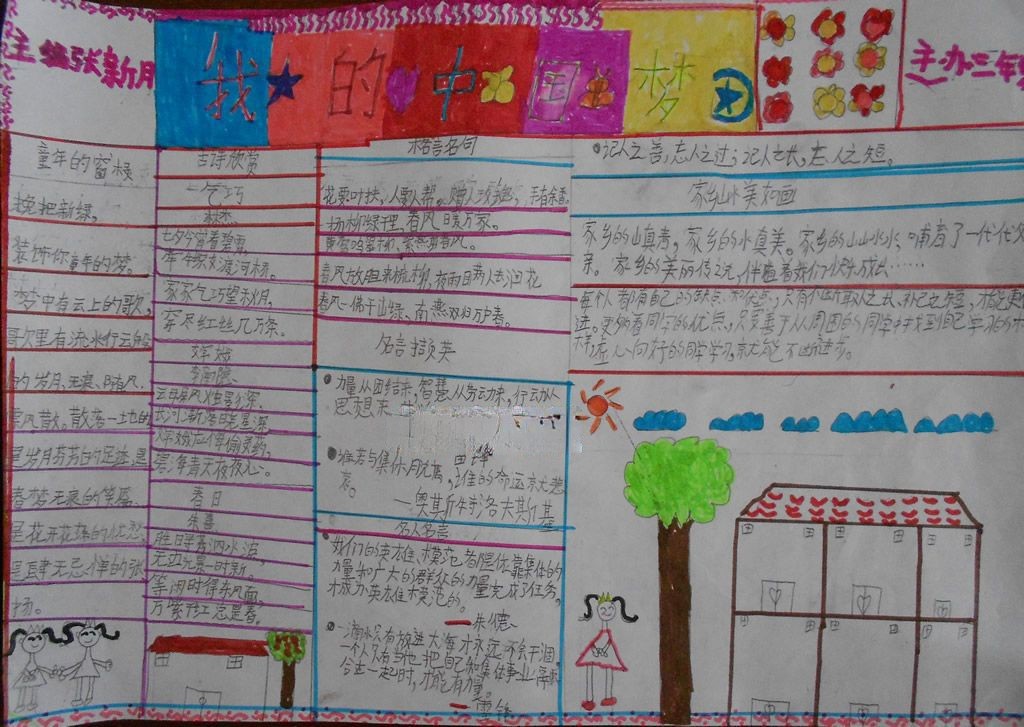 主编张新月
我的中国梦
主办三年
童年的窗棂
挽把新绿,
装饰你童年的梦。
梦中有云上的歌,
歌次里有流水行云的
的岁月、无衰、随风,
散落一地的
是岁月芬芳的足迹,是
春梦无衰的笑靥。
是花开花落的
是肆无忌惮的张
扬。
古诗欣赏
乞巧
林杰
七夕今宵看碧霄,
牵牛织女渡河桥。
家家乞巧望秋月,
穿尽红丝几万条。
嫦娥
李商隐
云母屏风烛影深,
长河渐落晓星沉。
嫦娥应悔偷灵药,
碧海青天夜夜心。
春日
朱熹
胜日寻芳泗水滨,
无边光景一时新。
等闲识得东风面,
万紫千红总是春。
格言名句
花要叶扶,人要人帮。赠人玫瑰,手有余香。
杨柳绿千里,春风暖万家。
春风放胆来梳柳,夜雨瞒人去润花
春风一拂千山绿、南燕双归万户春。
名言撷英
力量从团结来,智慧从劳动来,行动从
思想来
田锋
谁若与集体脱离,谁的命运就大悲
哀。
—奥斯特洛夫斯基
名人名言
我们的英雄、模范者是依靠集体的
力量和广大的群众的力量完成了任务,
才成为英雄模范的。
—朱德
一滴水只有放进大海才永远不会干涸。
一个人只有当他把自己和集体事业
合在一起时,才能有力量。
—雷锋
记人之善,忘人之过;记人之长,忘人之短。
家乡山水美如画
家乡的山真青,家乡的水真美。家乡的山山水水,哺育了一代代父
亲。家乡的美丽传说,伴随着我们快乐成长……
每个人都有自己的缺点和优点,只有不断取人之长、补己之短,才能更
进。要多看同学的优点,只要善于从周围的同学中找到自己学习的
样,虚心向好的同学学习,就能不断进步。